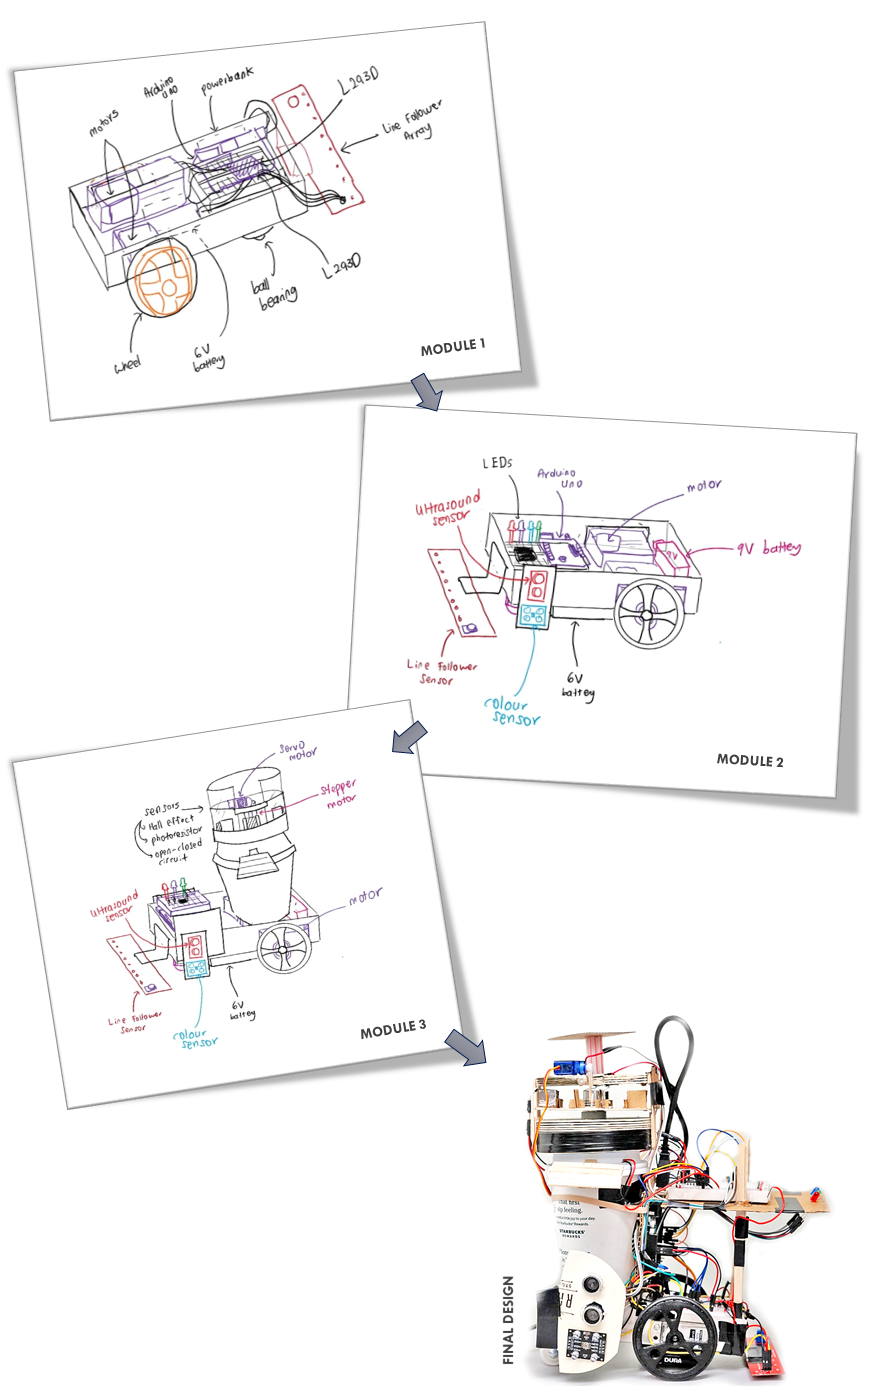 motors
Arduino
uno
powerbank
L293D
Line Follower
Array
L293D
ball
bearing
6V
battery
wheel
MODULE 1
LEDs
Arduino
uno
motor
ultrasound
sensor
9V
9V battery
Line Follower
Sensor
colour
sensor
6V
battery
MODULE 2
servo
motor
stepper
motor
sensors
Hall effect
photoresistor
open-closed
circuit
ultrasound
sensor
motor
Line Follower
Sensor
colour
sensor
6V
battery
MODULE 3
that first
sip feeling.
STARBUCKS®
REWARDS
DURA
FINAL DESIGN